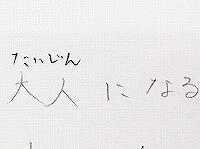 たいじん
大人になる